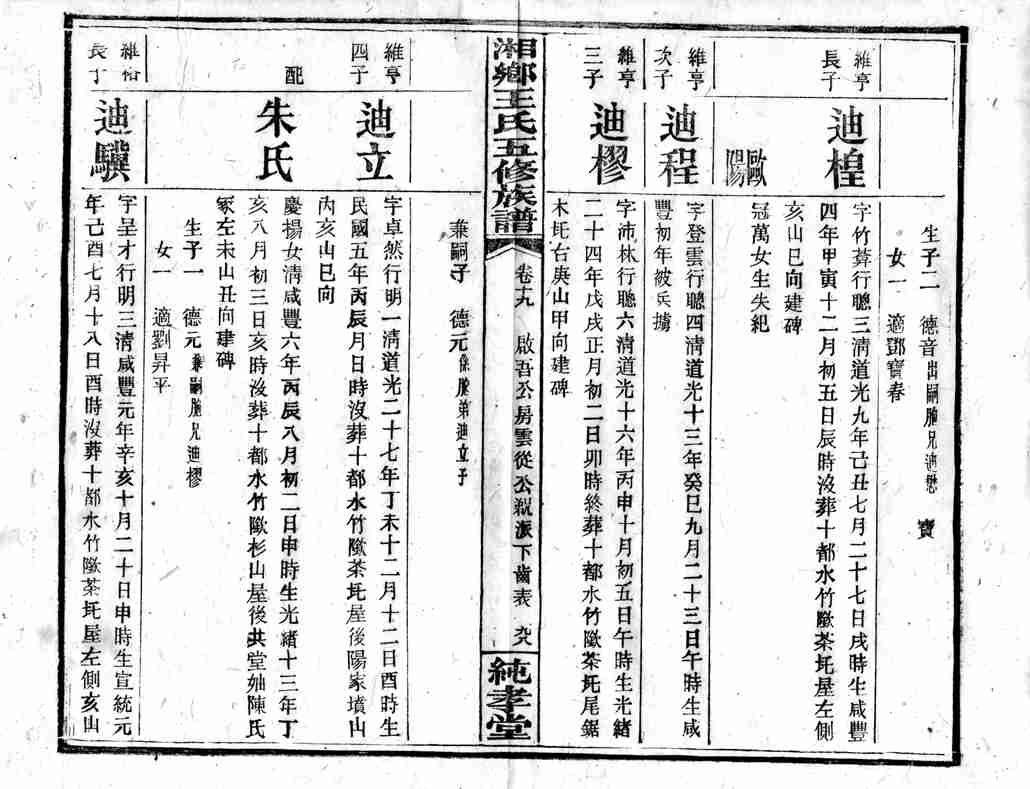 生子二　德音出嗣胞兄迪懋　寶
女一　適鄧寶春
維亨
長子
迪楻
字竹葊行聰三清道光九年己丑七月二十七日戌時生咸豐
四年甲寅十二月初五日辰時沒葬十都水竹歐茶坵屋左側
亥山巳向建碑
歐陽
冠萬女生失紀
維亨
次子
迪程
字登雲行聰四清道光十三年癸巳九月二十三日午時生咸
豐初年被兵擄
維亨
三子
迪樛
字沛林行聰六清道光十六年丙申十月初五日午時生光緒
二十四年戊戌正月初二日卯時終葬十都水竹歐茶坵尾鋸
木坵台庚山甲向建碑
湘鄉王氏五修族譜
卷十九　啟吾公房雲從公親派下齒表
純孝堂
兼嗣子　德元係胞弟迪立子
維亨
四子
迪立
字卓然行明一清道光二十七年丁未十二月十二日酉時生
民國五年丙辰月日時沒葬十都水竹歐茶坵屋後陽家墳山
丙亥山巳向
配
朱氏
慶揚女清咸豐六年丙辰八月初二日申時生光緒十三年丁
亥八月初三日亥時沒葬十都水竹歐杉山屋後共堂妯陳氏
冢左未山丑向建碑
生子一　德元兼嗣胞兄迪樛
女一　適劉昇平
長子
迪驥
字呈才行明三清咸豐元年辛亥十月二十日申時生宣統元
年己酉七月十八日酉時沒葬十都水竹歐茶坵屋左側亥山